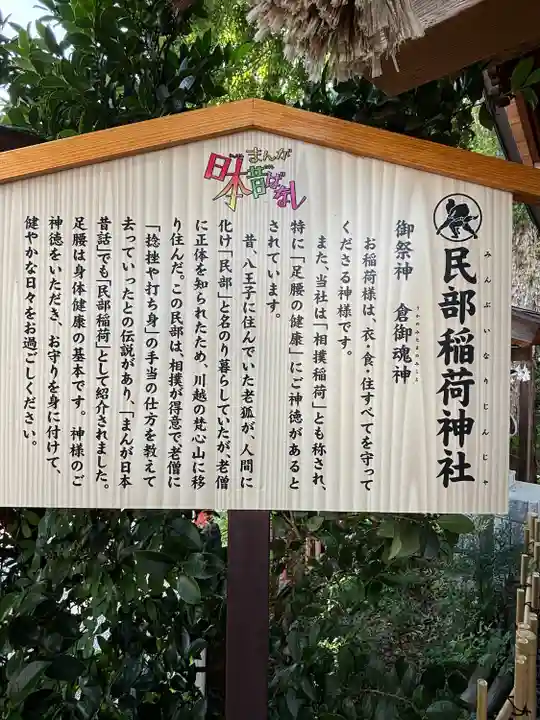 民部稲荷神社
みんぶいなりじんじゃ
御祭神　倉御魂神
うかのみたまのみこと
お稲荷様は、衣・食・住すべてを守って
くださる神様です。
また、当社は「相撲稲荷」とも称され、
特に「足腰の健康」にご神徳があると
されています。
昔、八王子に住んでいた老狐が、人間に
化け「民部」と名のり暮らしていたが、老僧
に正体を知られたため、川越の梵心山に移
り住んだ。この民部は、相撲が得意で老僧に
「捻挫や打ち身」の手当の仕方を教えて
去っていったとの伝説があり、「まんが日本
昔話」でも「民部稲荷」として紹介されました。
足腰は身体健康の基本です。神様のご
神徳をいただき、お守りを身に付けて、
健やかな日々をお過ごしください。
まんが
日本昔ばなし